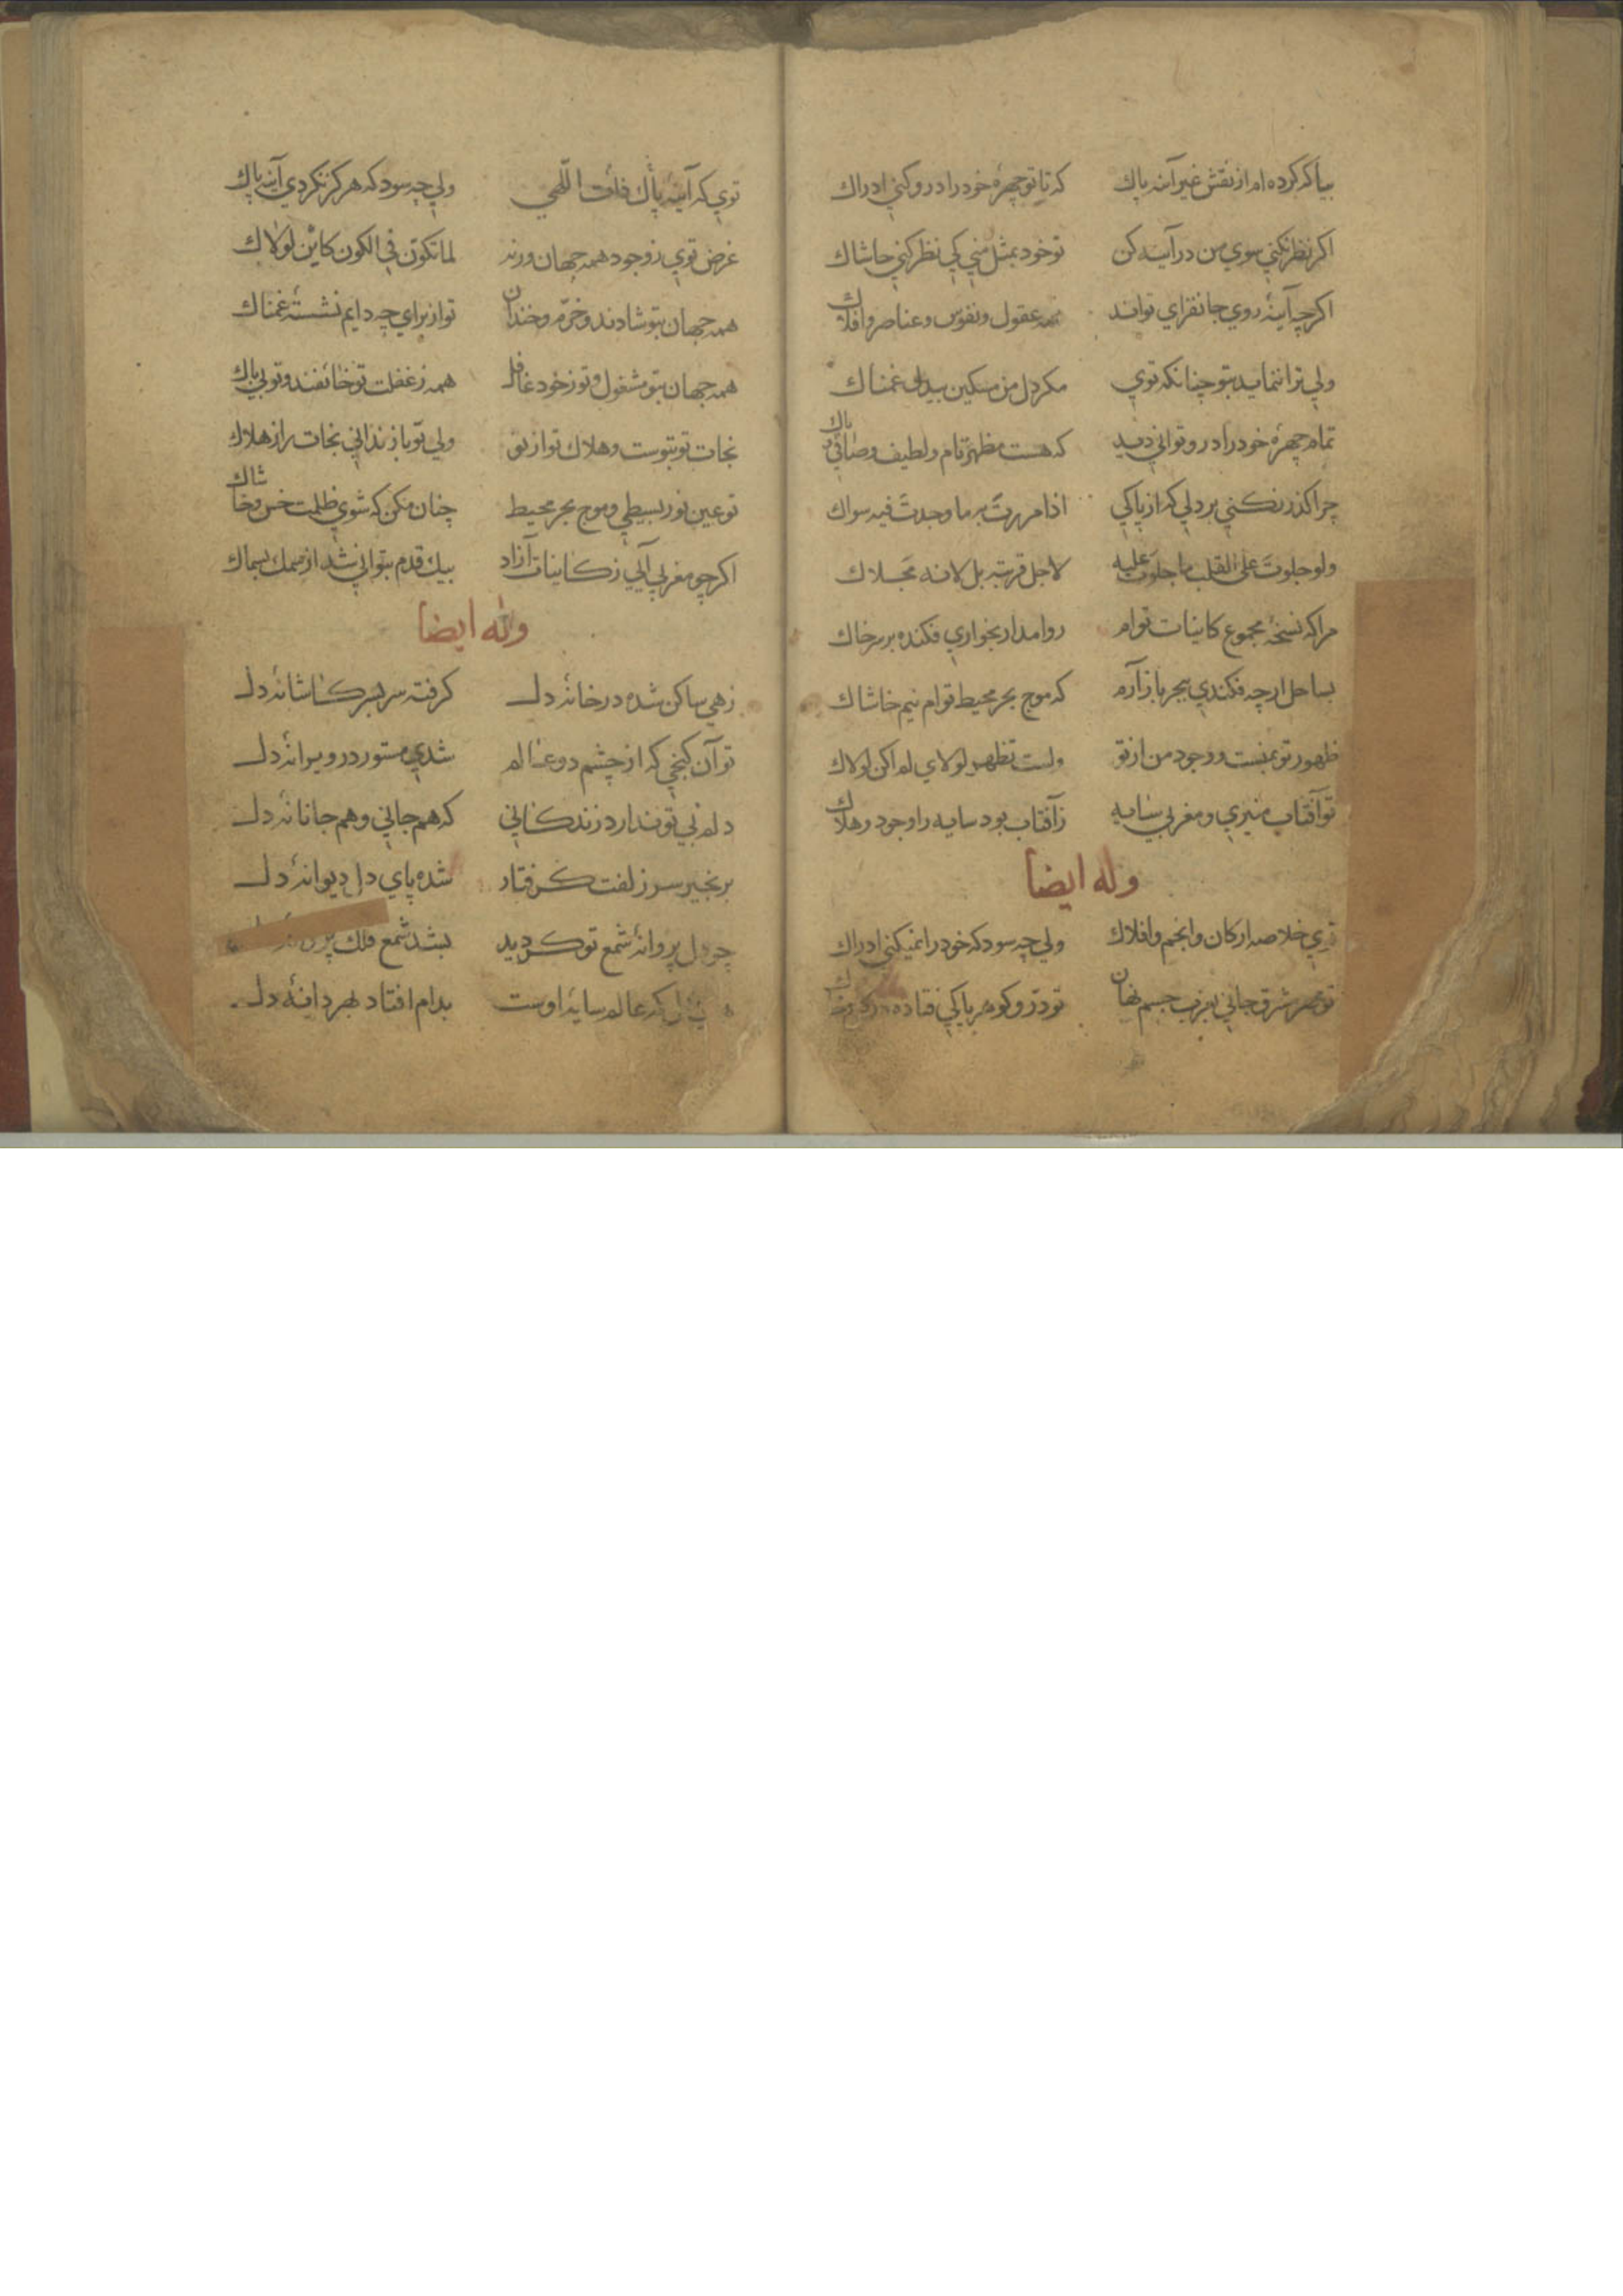 بیا که کرده ام از نقش غیر آینه پاك که تا تو چهرهٔ خود را درو کنی ادراك
اکر نظر نکنی سوی من در آینه کن تو خود بمثل منی کی نظر کنی حاشاك
اکرچه آینهٔ روی جانفزای تواند همه عقول و نفوس و عناصر و افلاك
ولی ترا ننماید بتو چنانکه توی مکر دل من مسکین بیدل غمناك
تمام چهرهٔ خود را درو توانی دید که هست مظهر تام و لطیف و صافی پاك
چرا کذر نکنی بر دلی که از پاکی اذا مررت به ما وجدت فیه سواك
ولو جلوت علی القلب ما جلوت علیه لاجل قربته بل لانه مجلاك
مرا که نسخهٔ مجموع کاینات توام روا مدار بخواری فکنده بر سر خاك
بساحل ارچه فکندی ببحر باز آرم که موج بحر محیط توام نیم خاشاك
ظهور تو بمنست و وجود من از تو ولست تظهر لولای لم اکن لولاك
تو آفتاب منیری و مغربی سایه ز آفتاب بود سایه را وجود و هلاك
وله ایضا
توی خلاصه ارکان و انجم و افلاك ولی چه سود که خود را نمیکنی ادراك
تو مهر شرق جانی بغرب جسم نهان تو درّ و کوهر پاکی فتاده در
توی که آینه پاك ذات اللّهی ولی چه سود که هرکز نکردی آینه پاك
غرض توی ز وجود همه جهان ورنه لما تکون فی الکون کاین لولاك
همه جهان بتو شادند و خرّم و خندان تو از برای چه دایم نشستهٔ غمناك
همه جهان بتو مشغول و تو ز خود غافل همه ز غفلت تو خائفند و تو بی باك
نجات تو بتوست و هلاك تو از تو ولی تو باز ندانی نجات را ز هلاك
تو عین نور بسیطی و موج بحر محیط چنان مکن که شوی ظلمت خس و خاشاك
اکر چو مغربی آیی ز کاینات آزاد بیك قدم بتوانی شد از سمك بسماك
وله ایضا
زهی ساکن شده در خانهٔ دل کرفته سر بسر کاشانهٔ دل
تو آن کنجی که از چشم دو عالم شدی مستور در ویرانهٔ دل
دلم بی تو ندارد زندکانی که هم جانی و هم جانانهٔ دل
بزنجیر سر زلفت کرفتار شده پای دل دیوانهٔ دل
چو دل پروانهٔ شمع تو کردید بشد شمع فلك
که عالم سایهٔ اوست بدام افتاد بهر دانهٔ دل